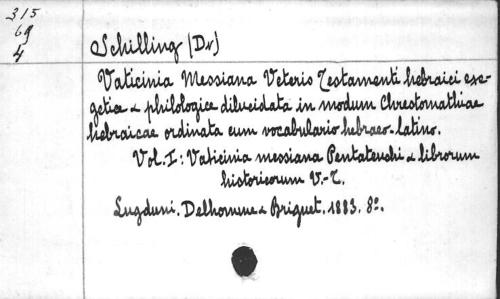 315
69
4
Schilling (Dr)
Vaticinia Messiana Veteris Testamenti hebraici exe-
getice & philologice dilucidata in modum Chrestomathiae
hebraicae ordinata cum vocabulario hebraeo-latino.
Vol. I: Vaticinia messiana Pentateuchi & librorum
historicorum V.-T.
Lugduni. Delhomme & Briguet. 1883. 8º.